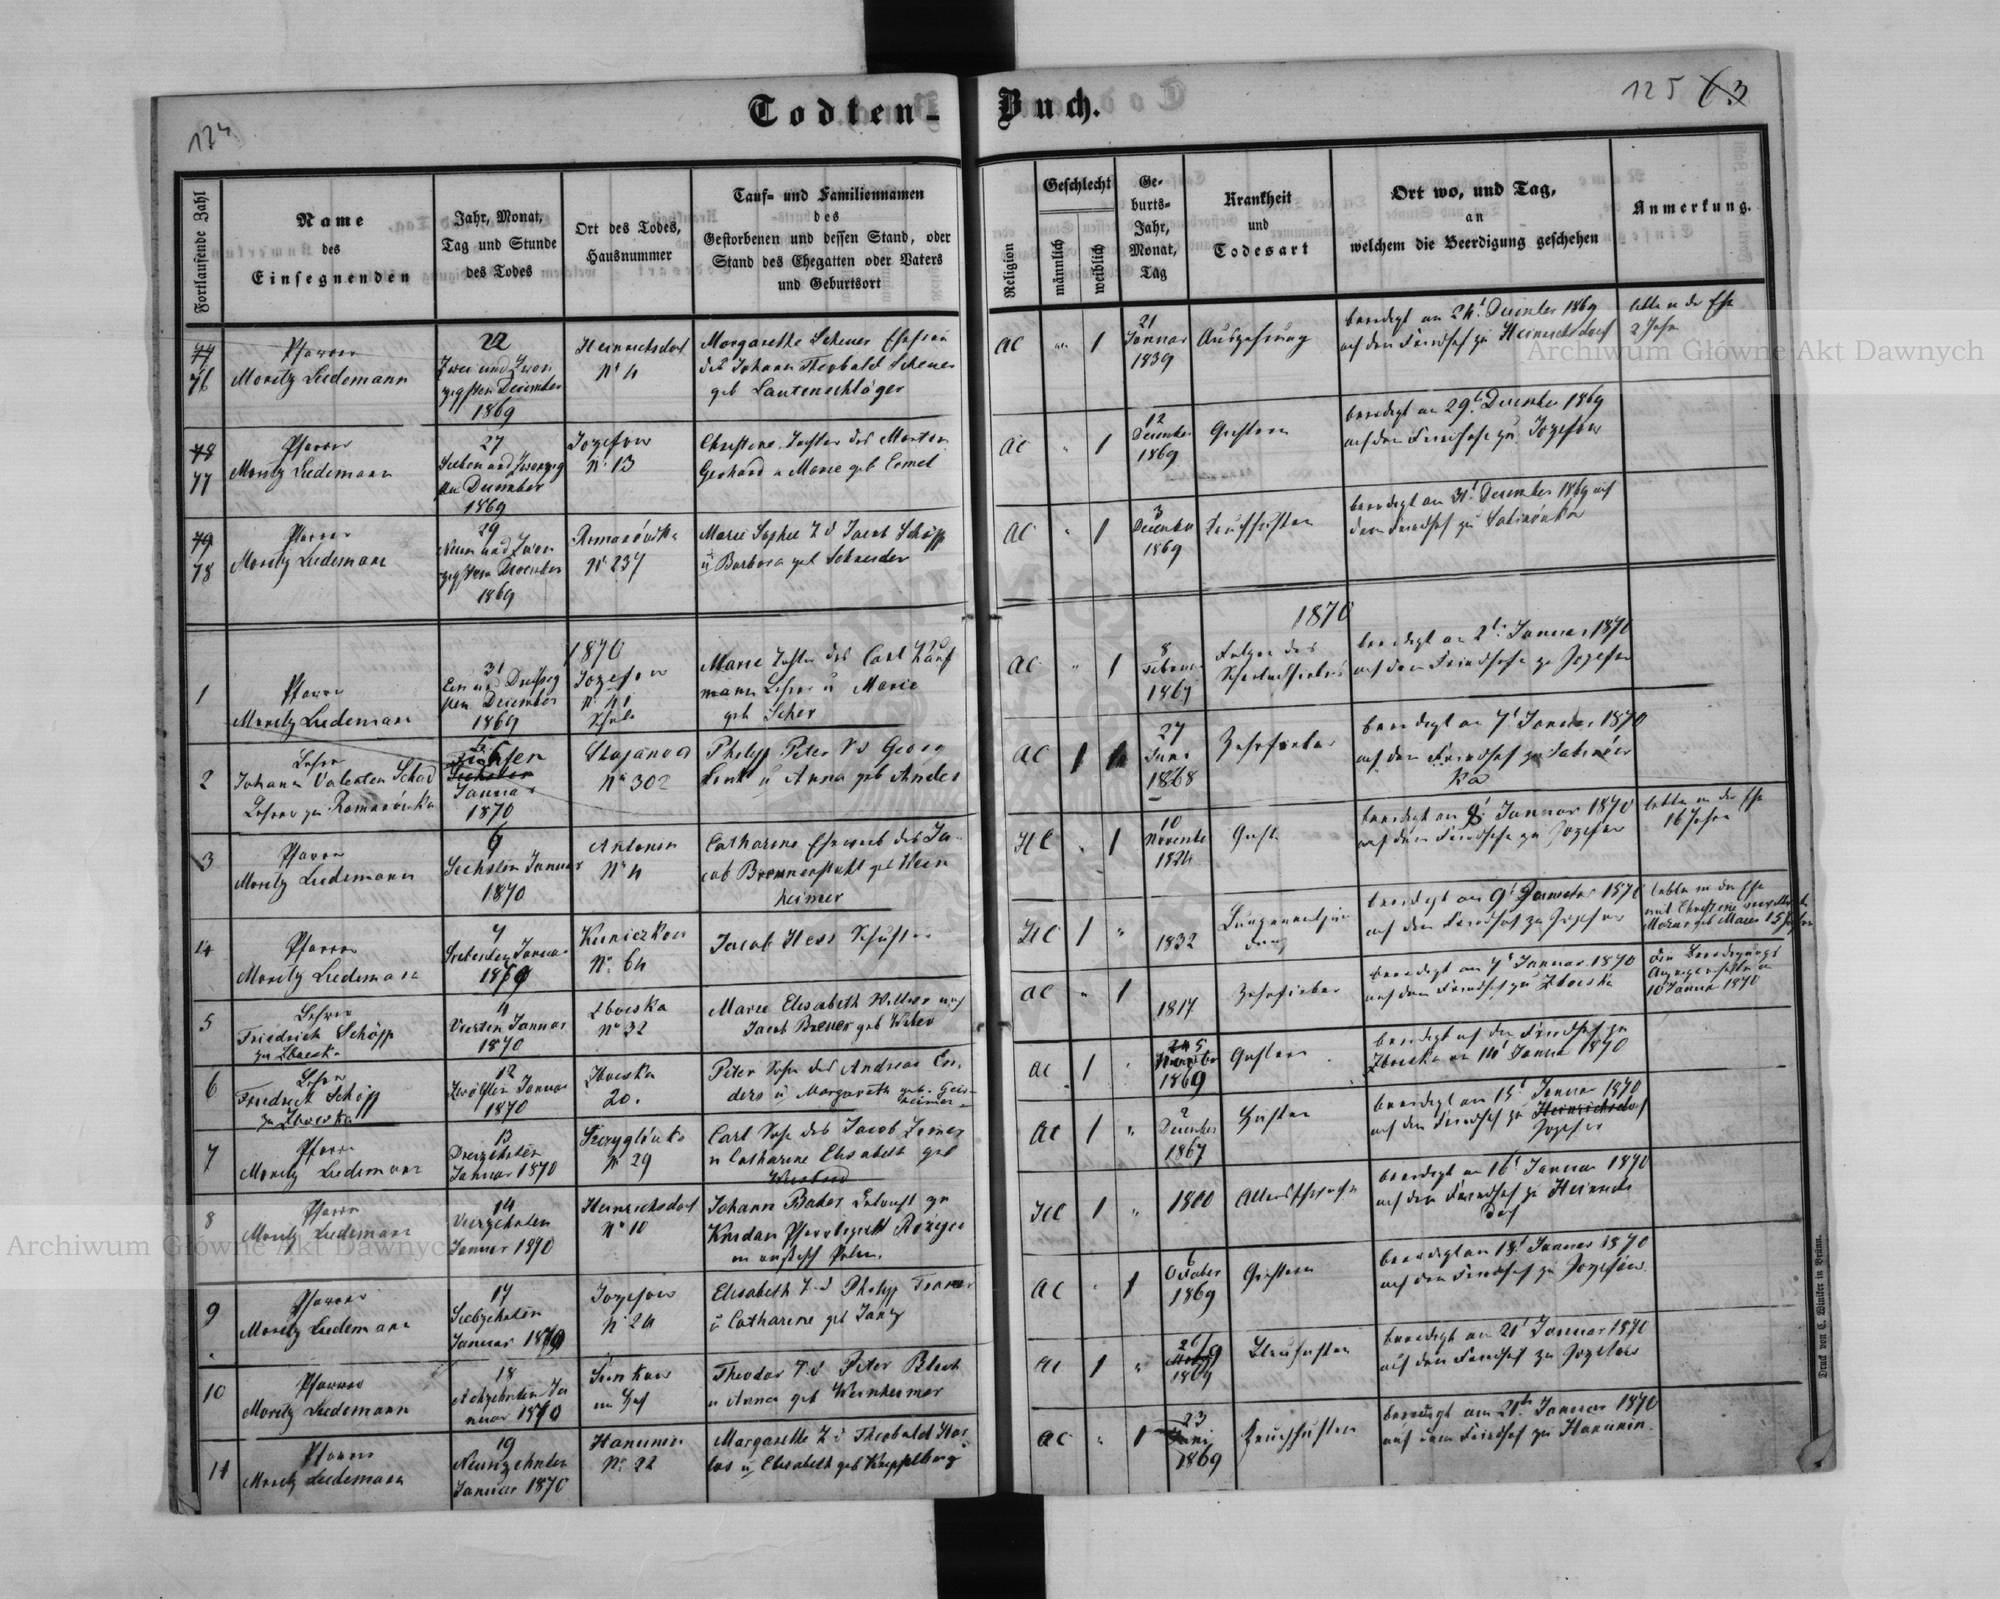 Todten-Buch.
124.
125
63
Fortlaufende Zahl
Name
des
Einsegnenden
Jahr, Monat,
Tag und Stunde
des Todes
Ort des Todes,
Hausnummer
Tauf- und Familiennamen
des
Gestorbenen und dessen Stand, oder
Stand des Ehegatten oder Vaters
und Geburtsort
Religion
Geschlecht
männlich
weiblich
Ge-
burts-
Jahr,
Monat,
Tag
Krankheit
und
Todesart
Ort wo, und Tag,
an
welchem die Beerdigung geschehen
Anmerkung.
77
76
Pfarrer
Moritz Ludemann
22
Zwei und Zwan
zigsten December
1869
Heinrichsdorf
No 4
Margarethe Scheuer Ehefrau
des Johann Theobald Scheuer
geb Lautenschläger
AC
1
21
Januar
1839
Auszehrung
beerdigt am 24t December 1869
auf dem Friedhof zu Heinrichsdorf
lebte in der Ehe
2 Jahr
78
77
Pfarrer
Moritz Ludemann
27
Sieben und Zwanzig
sten December
1869
Jozefow
No 13
Christine Tochter des Martin
Gerhard u Marie geb Ermel
AC
1
12
December
1869
beerdigt am 29t December 1869
auf dem Friedhofe zu Jozefow
79
78
Pfarrer
Moritz Ludemann
29
Neun und Zwan
zigsten December
1869
Romanówka
No 237
Marie Sophie T d Jacob Schöpp
u Barbara geb Schneider
AC
1
3
December
1869
Keuchhusten
beerdigt am 31t December 1869 auf
dem Friedhof zu Sabinówka
1870
1870
1
Pfarrer
Moritz Ludemann
31
Ein und Dreißig
sten December
1869
Jozefow
No 41
Schule
Marie Tochter des Carl Kauf
mann Lehrer u Marie
geb Scher
AC
1
8
Februar
1869
Folgen des
Scharlachfiebers
beerdigt am 2t Januar 1870
auf dem Friedhofe zu Jozefow
2
Lehrer
Johann Valentin Schad
Lehrer zu Romanówka
Januar
1870
Stajanow
No 302
Philipp Peter S d Georg
u Anna geb Andes
AC
1
27
Juni
1868
Zehrfieber
beerdigt am 7t Januar 1870
auf dem Friedhof zu Sabinów
ka
3
Pfarrer
Moritz Ludemann
6
Sechsten Januar
1870
Antonin
No 4
Catharine Eheweib des Ja-
cob Bronnenstuhl geb Wein
heimer
HC
1
10
November
1824
beerdigt am 8t Januar 1870
auf dem Friedhofe zu Jozefow
lebte in der Ehe
16 Jahre
4
Pfarrer
Moritz Ludemann
7
Siebenten Januar
1870
Kuniczkow
No. 64
Jacob Hess Schuster
HC
1
1832
Lungenentzün
dung
beerdigt am 9t Januar 1870
auf dem Friedhof zu Jozefow
lebte in der Ehe
5
Lehrer
Friedrich Schöpp
zu Zboiska
4
Vierten Januar
1870
Zboiska
No 32
Marie Elisabeth Witwe nach
Jacob Breuer geb Weber
AC
1
1817
Zehrfieber
beerdigt am 7t Januar 1870
auf dem Friedhof zu Zboiska
10 Januar 1870
6
Lehrer
Friedrich Schöpp
zu Zboiska
12
Zwölften Januar
1870
Zboiska
20.
Peter Sohn des Andreas En-
ders u Margareth geb. Geis-
heimer
AC
1
1869
beerdigt auf dem Friedhof zu
Zboiska am 14t Januar 1870
7
Pfarrer
Moritz Ludemann
13
Dreizehnten
Januar 1870
Strzygłówka
No 29
Carl Sohn des Jacob Zeiner
u Catharine Elisabeth geb
AC
1
2
December
1867
Husten
beerdigt am 15t Januar 1870
auf dem Friedhof zu Heinrichsdorf
Jozefow
8
Pfarrer
Moritz Ludemann
14
Vierzehnten
Januar 1870
Heinrichsdorf
No 10
Johann Bader
HC
1
1800
Altersschwäche
beerdigt am 16t Januar 1870
auf dem Friedhof zu Heinrichs
dorf
9
Pfarrer
Moritz Ludemann
17
Siebzehnten
Januar 1870
Jozefow
No 24
Elisabeth T. d Philipp
u Catharine geb Jantz
AC
1
6
October
1869
beerdigt am 18t Januar 1870
auf dem Friedhof zu Jozefow.
10
Pfarrer
Moritz Ludemann
18
Achzehnten Ja
nuar 1870
Sienkow
im Hof
Theodor S. d Peter Blech
u Anna geb Weinheimer
AC
1
1869
beerdigt am 21t Januar 1870
auf dem Friedhof zu Jozefow
11
Pfarrer
Moritz Ludemann
19
Neunzehnten
Januar 1870
Hanunin
No. 22
Margarethe T d Theobald
u Elisabeth geb
AC
1
23
Juni
1869
Keuchhusten
beerdigt am 21ten Januar 1870
auf dem Friedhof zu Hanunin.
Druck von C. Winiker in Brünn.
Archiwum Główne Akt Dawnych
Archiwum Główne Akt Dawnych